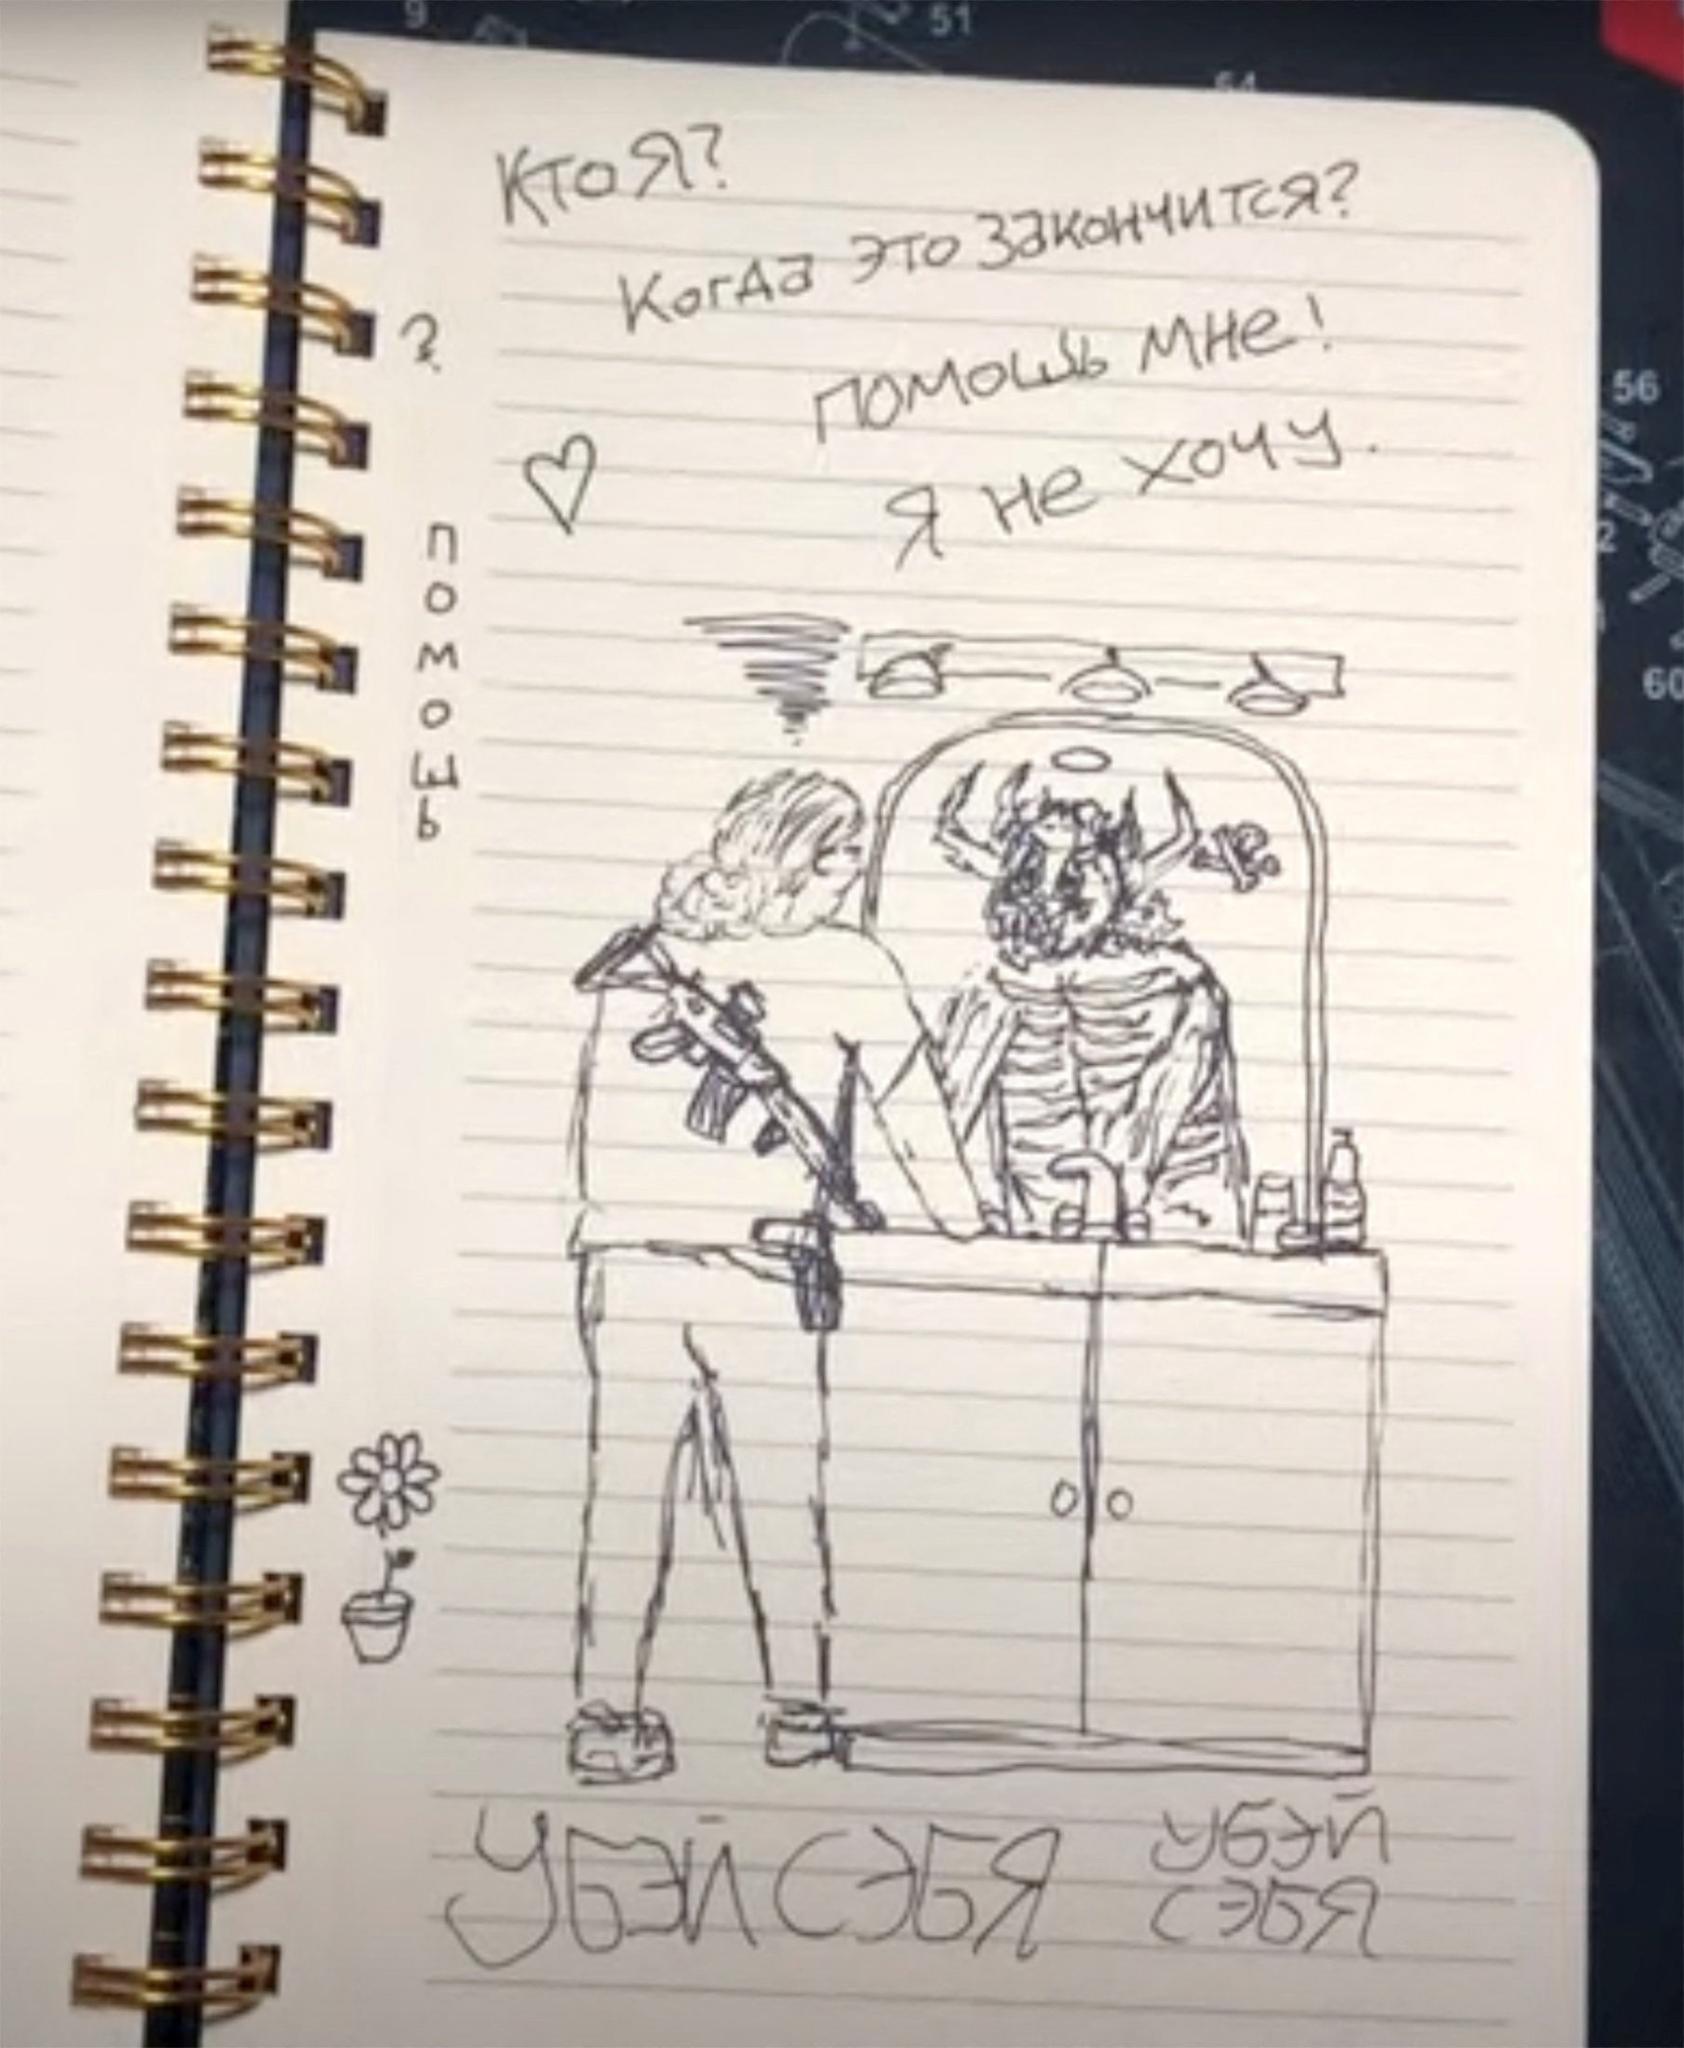 9
51
64
Кто я?
Когда это закончится?
?
помошь мне!
Я не хочу.
помошь
56
2
60
УБЭЙ СЭБЯ
УБЭЙ
СЭБЯ